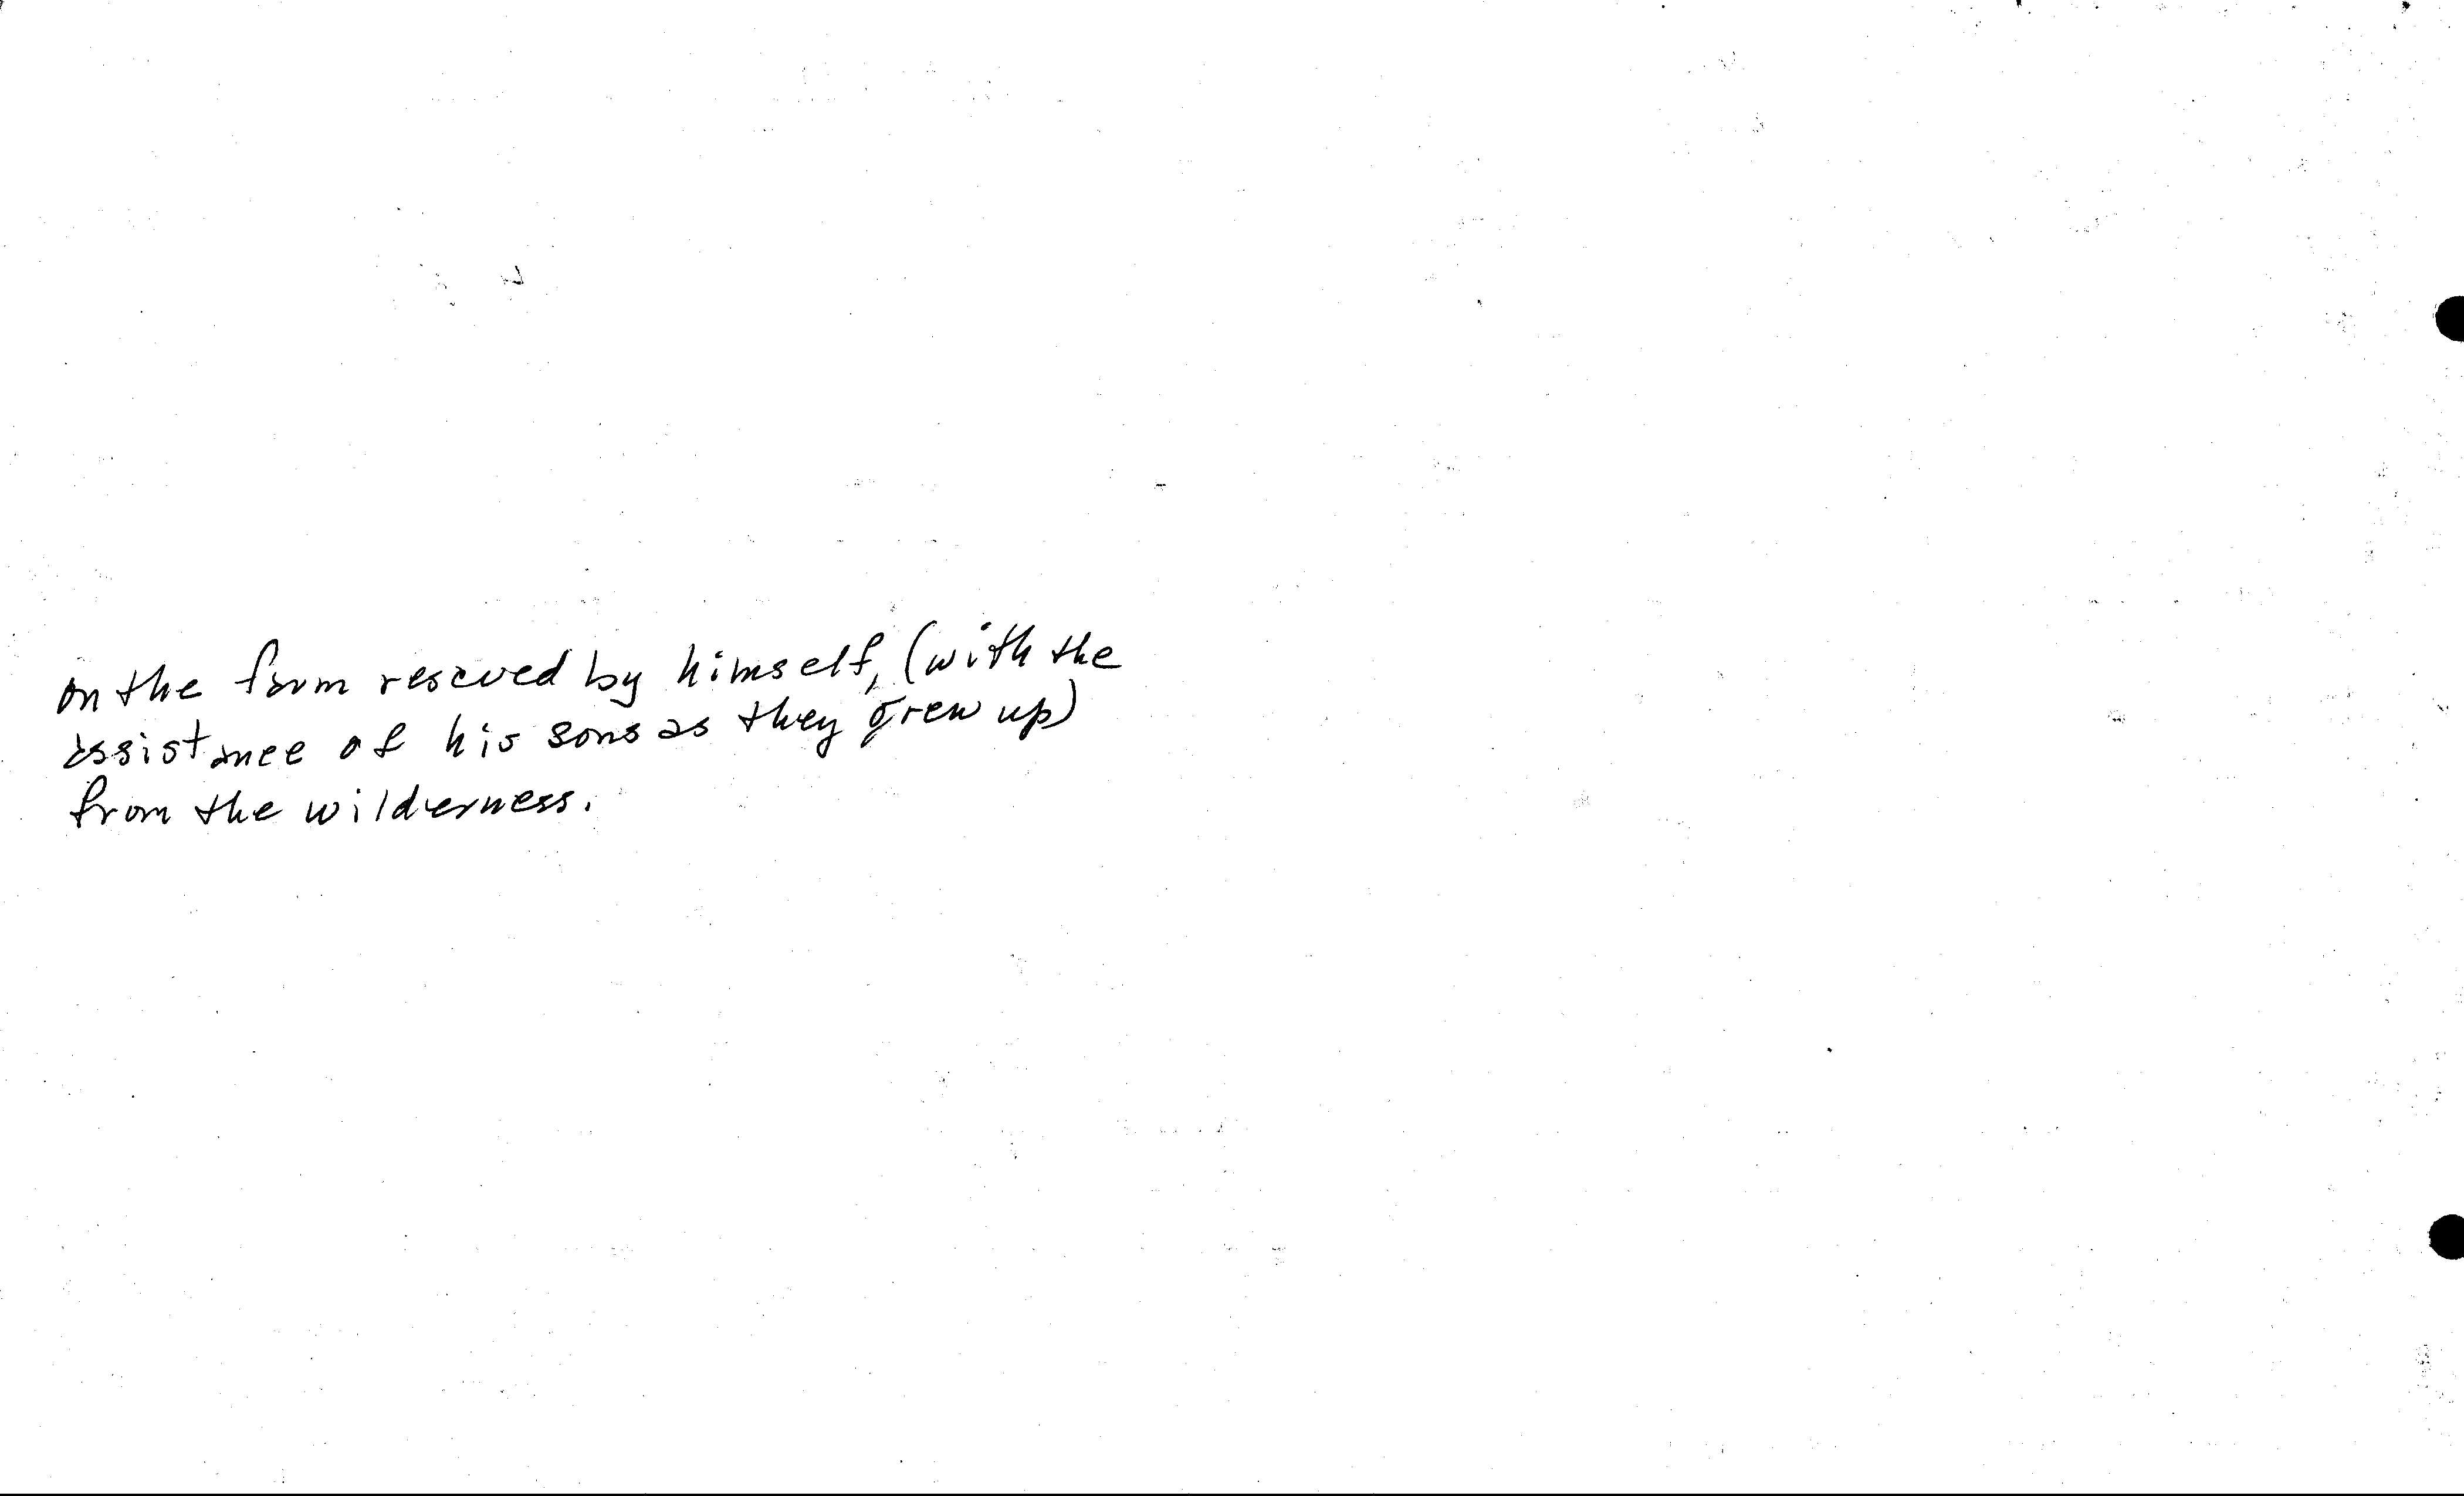 on the farm rescued by himself, (with the
assistance of his sons as they grew up)
from the wilderness.